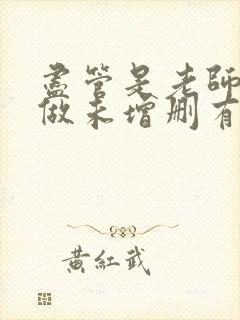 盡管是老師
做未增刪有
黃紅武